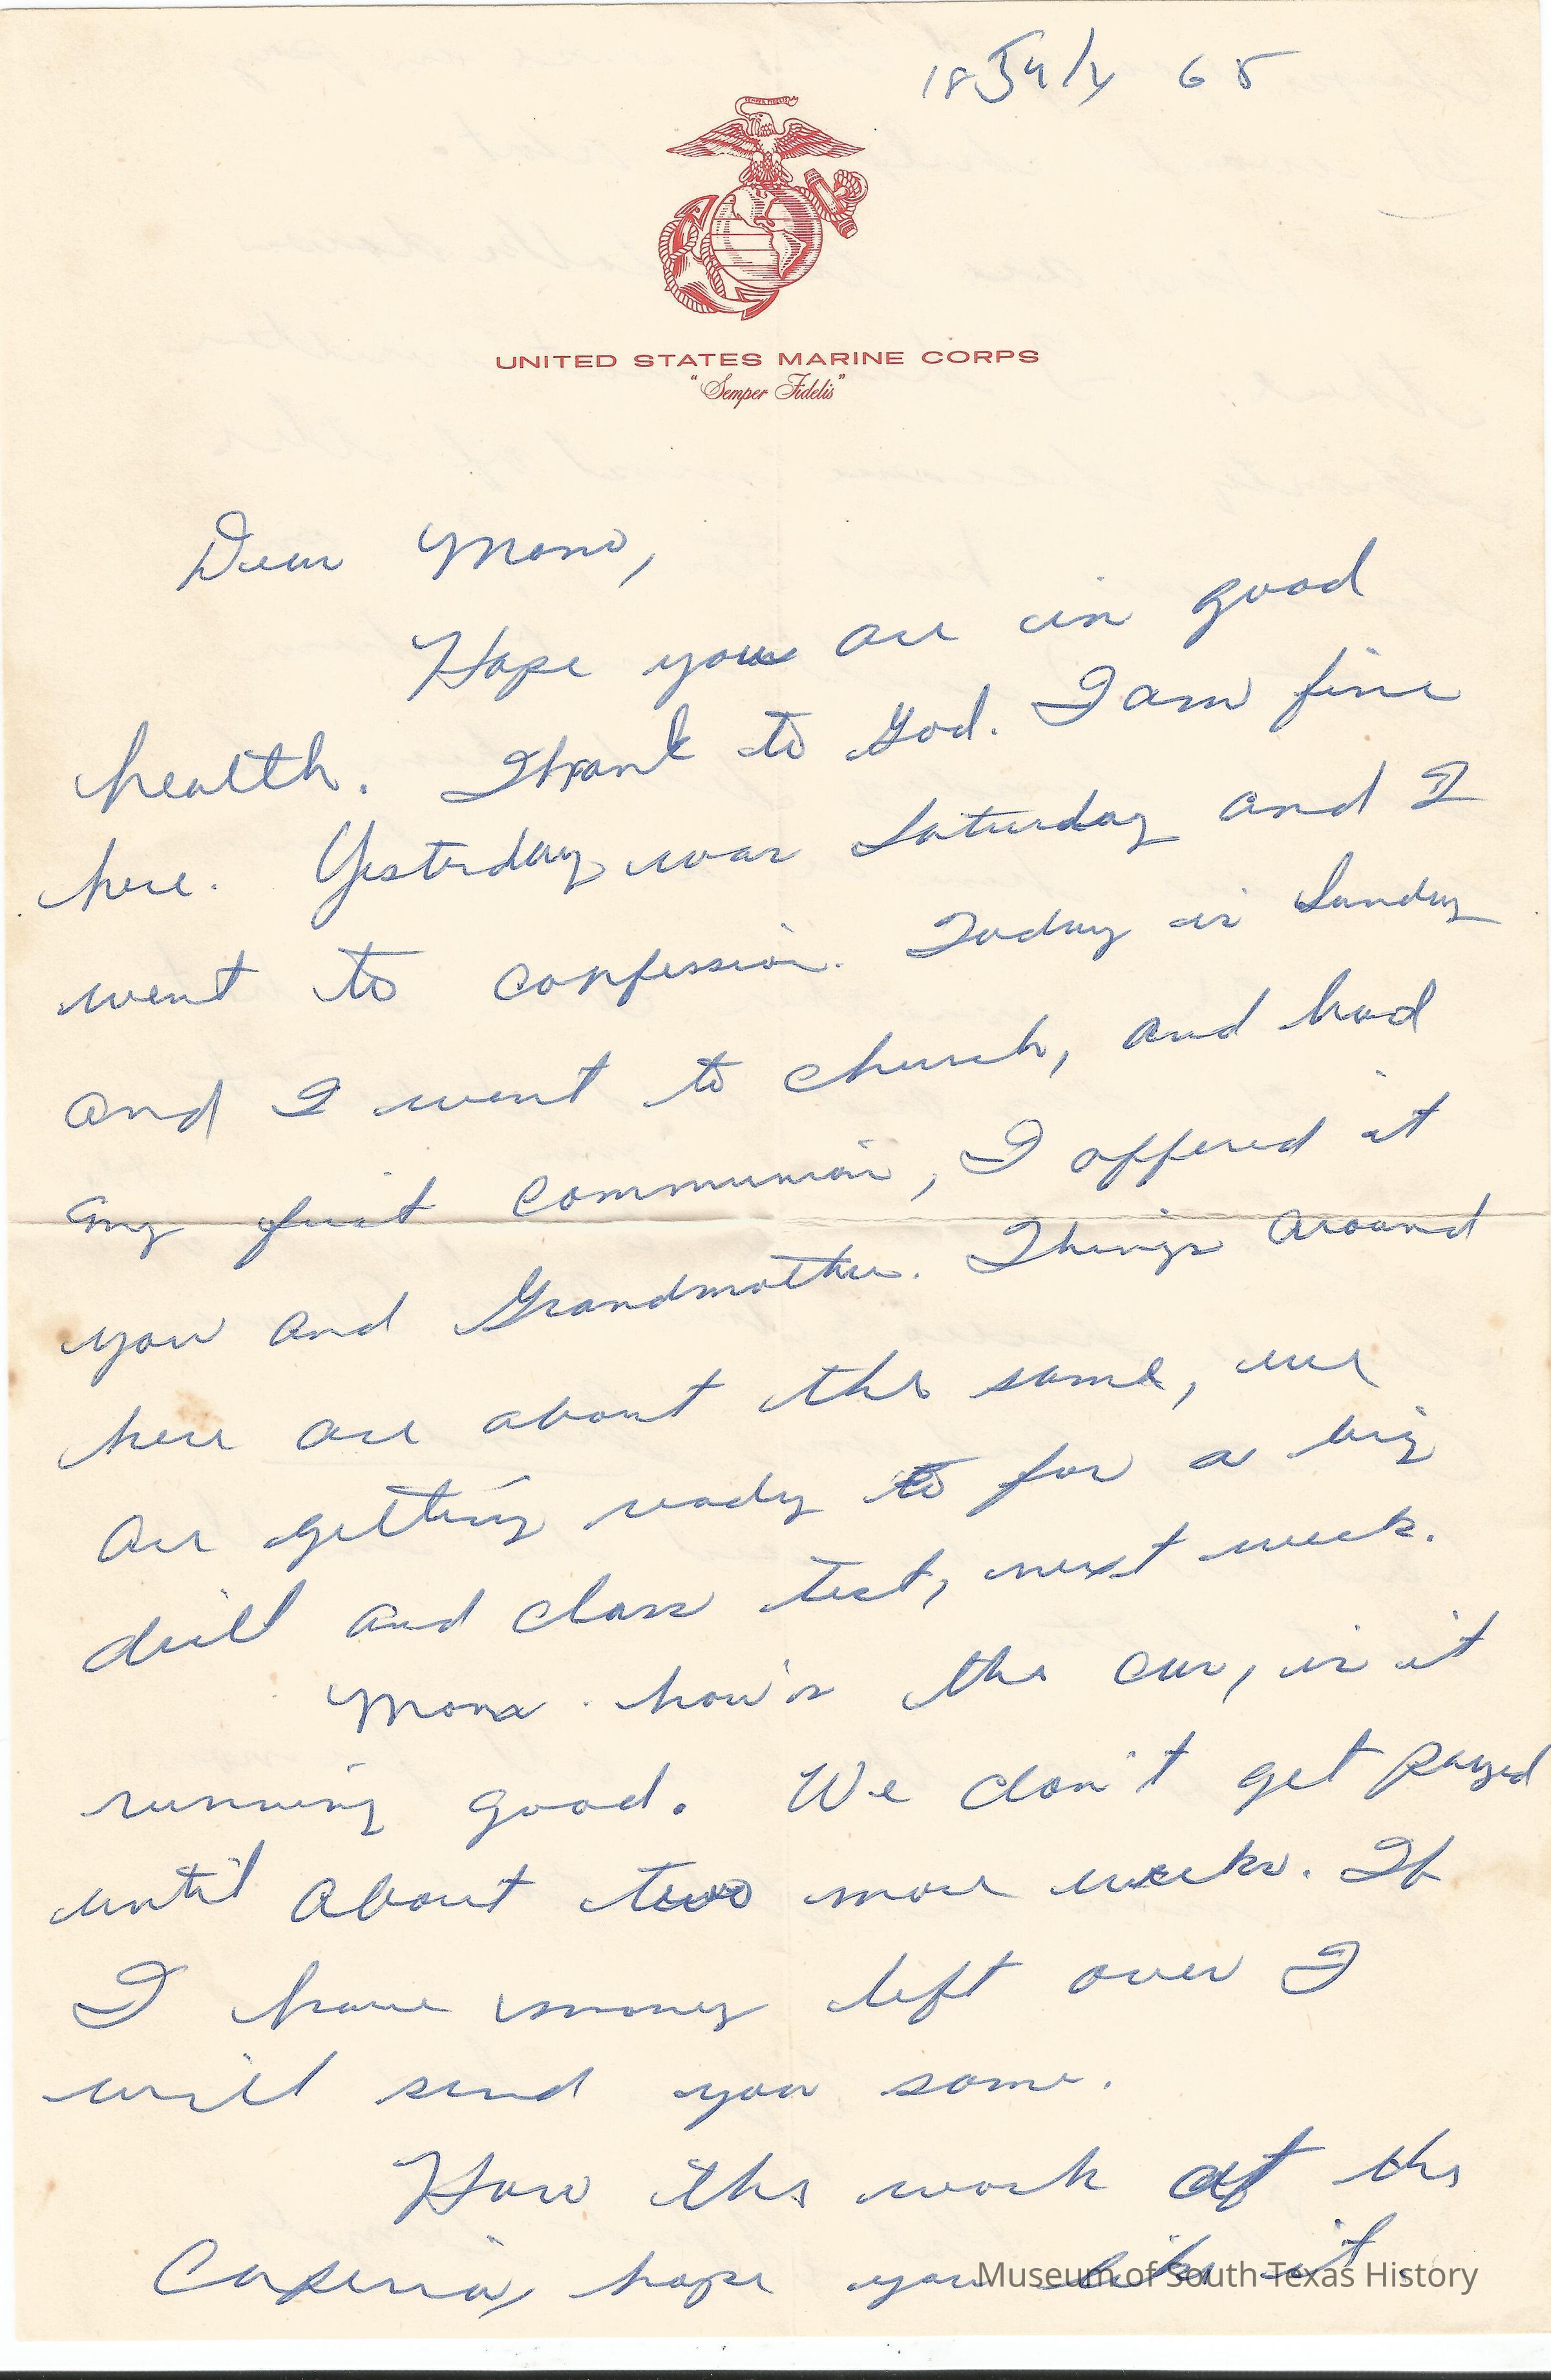 18 July 65
SEMPER FIDELIS
UNITED STATES MARINE CORPS
"Semper Fidelis"
Dear Mom,
Hope you are in good
health. Thank to God. I am fine
here. Yesterday was Saturday and I
went to confession. Today is Sunday
and I went to church, and had
my first communion, I offered it
you and Grandmother. Things around
here are about the same, we
are getting ready to for a big
drill and class test, next week.
Mom how's the car, is it
running good. We don't get payed
until about two more weeks. If
I have money left over I
will send you some.
How the work at the
hope you like it
Museum of South Texas History